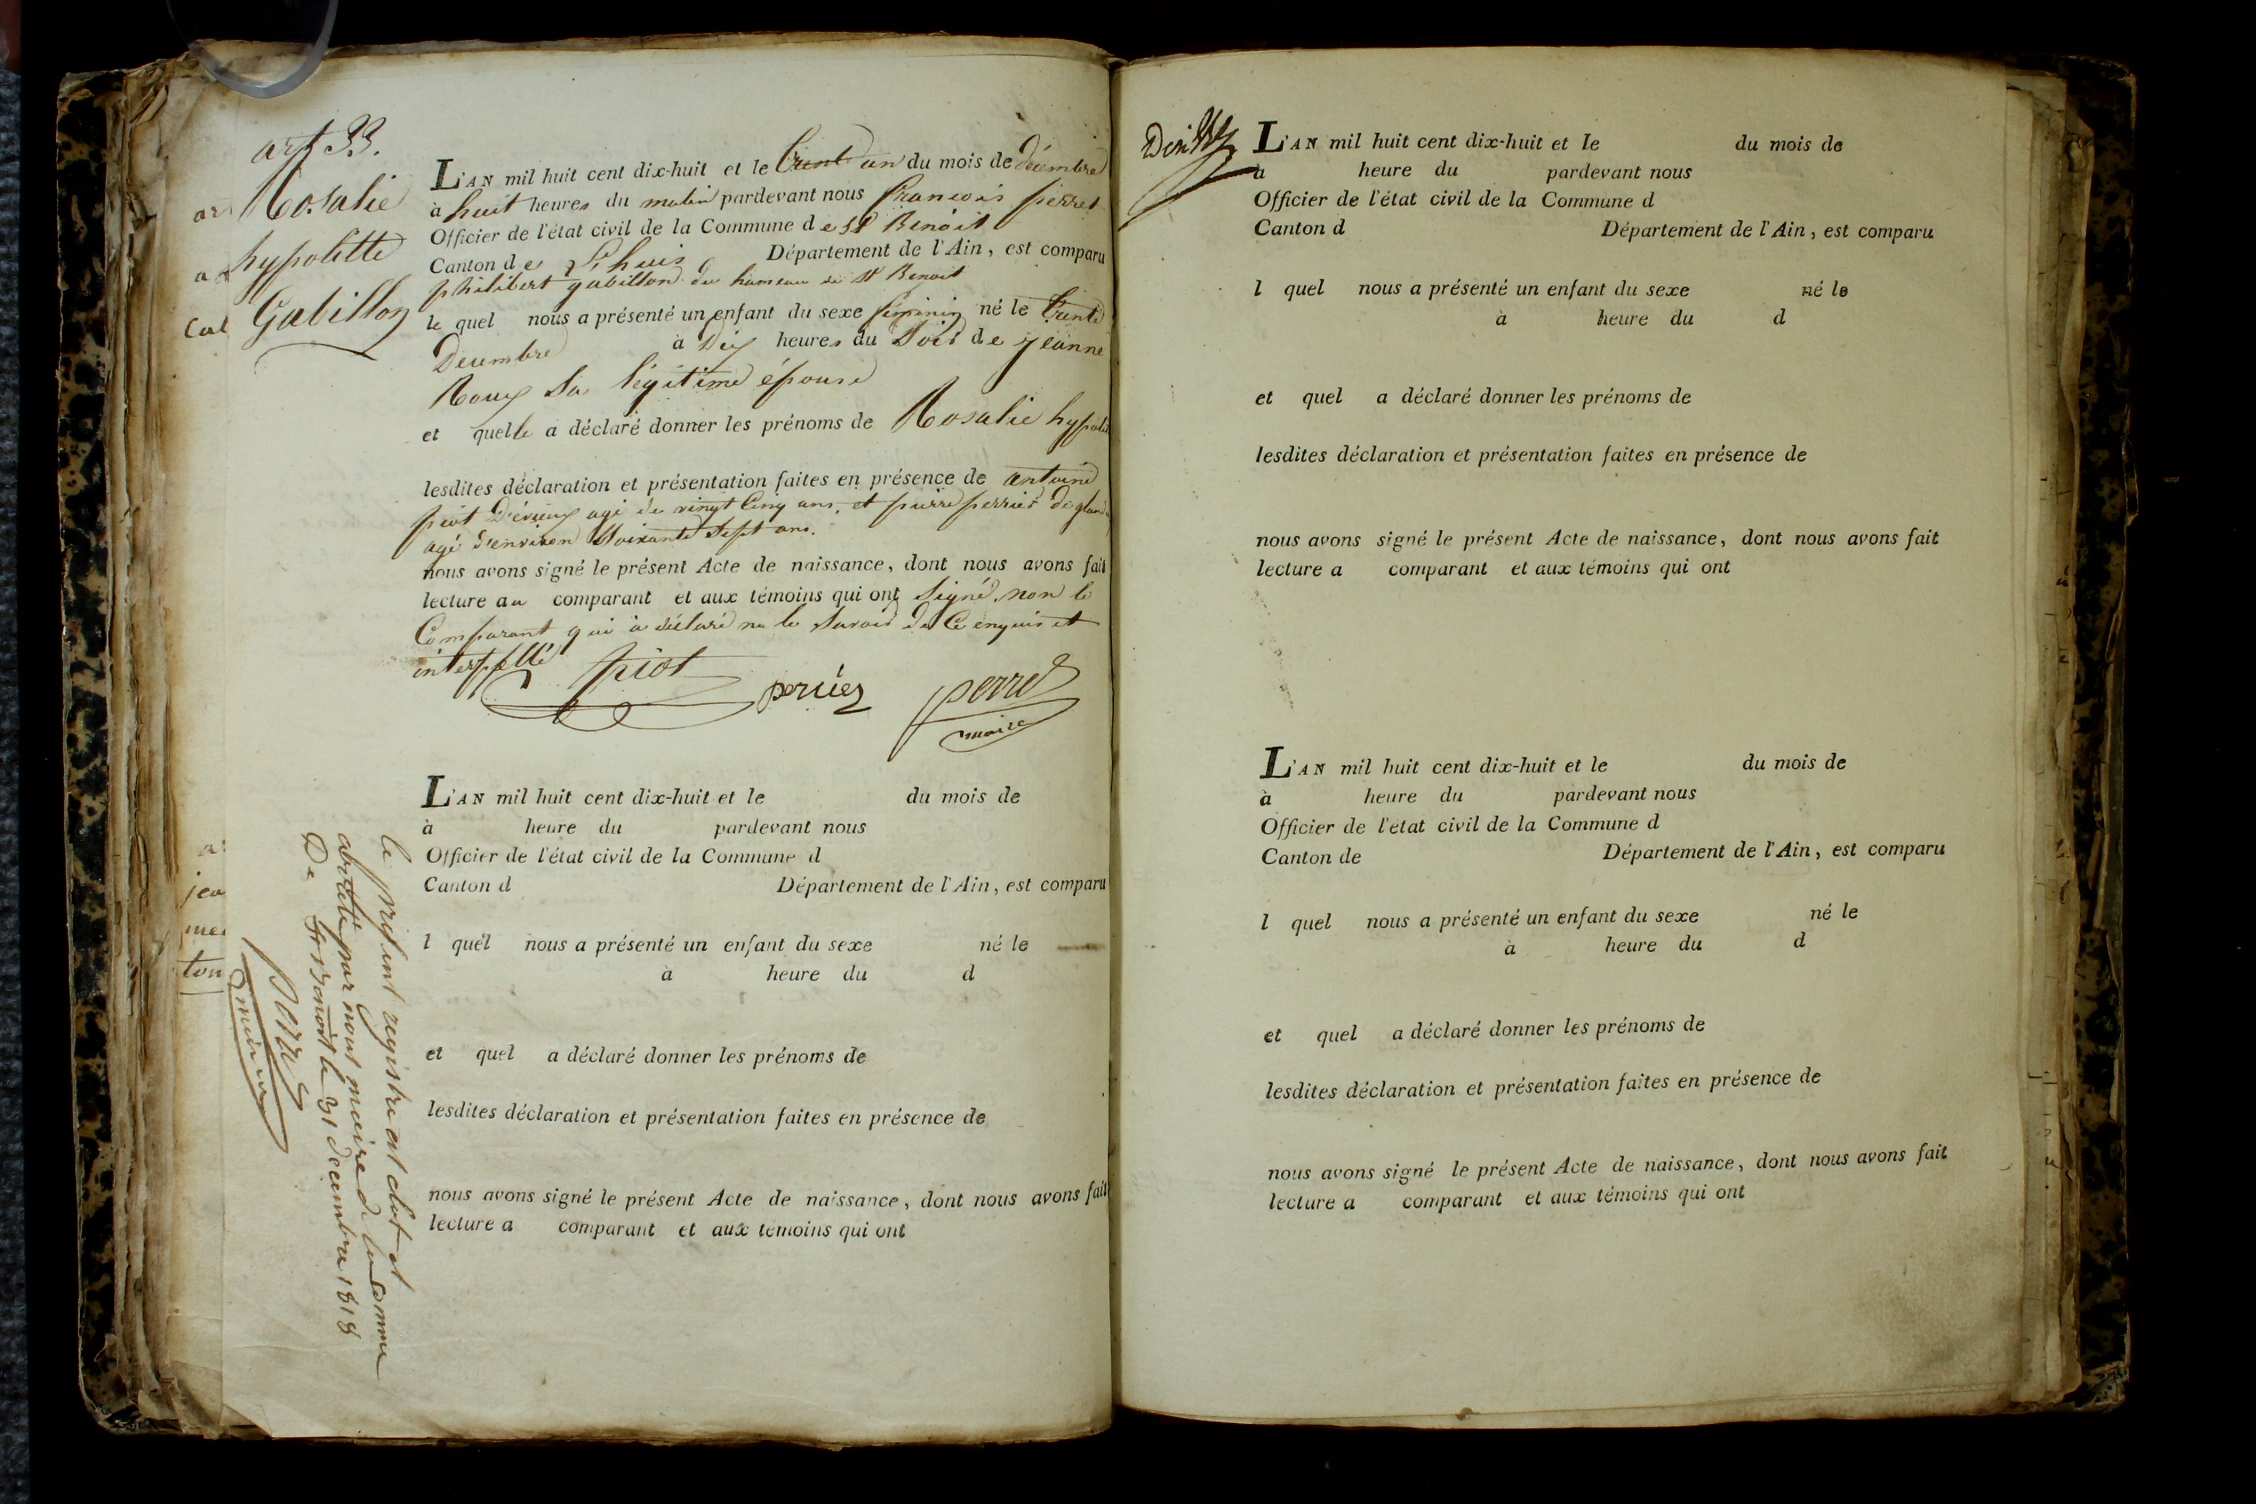 art 33.
Rosalie
hypolitte
Gabillon
L'AN mil huit cent dix-huit et le trent un du mois de décembre
à huit heures du matin pardevant nous francois perret
Officier de l'état civil de la Commune de St Benoit
Canton de Lhuis Département de l'Ain, est comparu
philibert gabillon du hameau de St Benoit
le quel nous a présenté un enfant du sexe féminin né le trente
Decembre à Dix heures du Soir de jeanne
Roux sa légitime épouse
et quelle a déclaré donner les prénoms de Rosalie hypolit
lesdites déclaration et présentation faites en présence de antoine
piot D'évieux agé de vingt cinq ans, et pierre perrier de
agé d'environ soixante sept ans.
nous avons signé le présent Acte de naissance, dont nous avons fait
lecture au comparant et aux témoins qui ont Signé, non le
Comparant qui a déclaré ne le Savoir de Ce enquis et
interpellé
piot
perret
maire
L'AN mil huit cent dix-huit et le du mois de
à heure du pardevant nous
Officier de l'état civil de la Commune d
Canton d Département de l'Ain, est comparu
l quel nous a présenté un enfant du sexe né le
à heure du d
et quel a déclaré donner les prénoms de
lesdites déclaration et présentation faites en présence de
nous avons signé le présent Acte de naissance, dont nous avons fait
lecture a comparant et aux témoins qui ont
le présent registre est clot et
arrêté par nous maire de la comune
De St Benoit le 31 decembre 1818
perret
maire
L'AN mil huit cent dix-huit et le du mois de
à heure du pardevant nous
Officier de l'état civil de la Commune d
Canton d Département de l'Ain, est comparu
l quel nous a présenté un enfant du sexe né le
à heure du d
et quel a déclaré donner les prénoms de
lesdites déclaration et présentation faites en présence de
nous avons signé le présent Acte de naissance, dont nous avons fait
lecture a comparant et aux témoins qui ont
L'AN mil huit cent dix-huit et le du mois de
à heure du pardevant nous
Officier de l'état civil de la Commune d
Canton de Département de l'Ain, est comparu
l quel nous a présenté un enfant du sexe né le
à heure du d
et quel a déclaré donner les prénoms de
lesdites déclaration et présentation faites en présence de
nous avons signé le présent Acte de naissance, dont nous avons fait
lecture a comparant et aux témoins qui ont